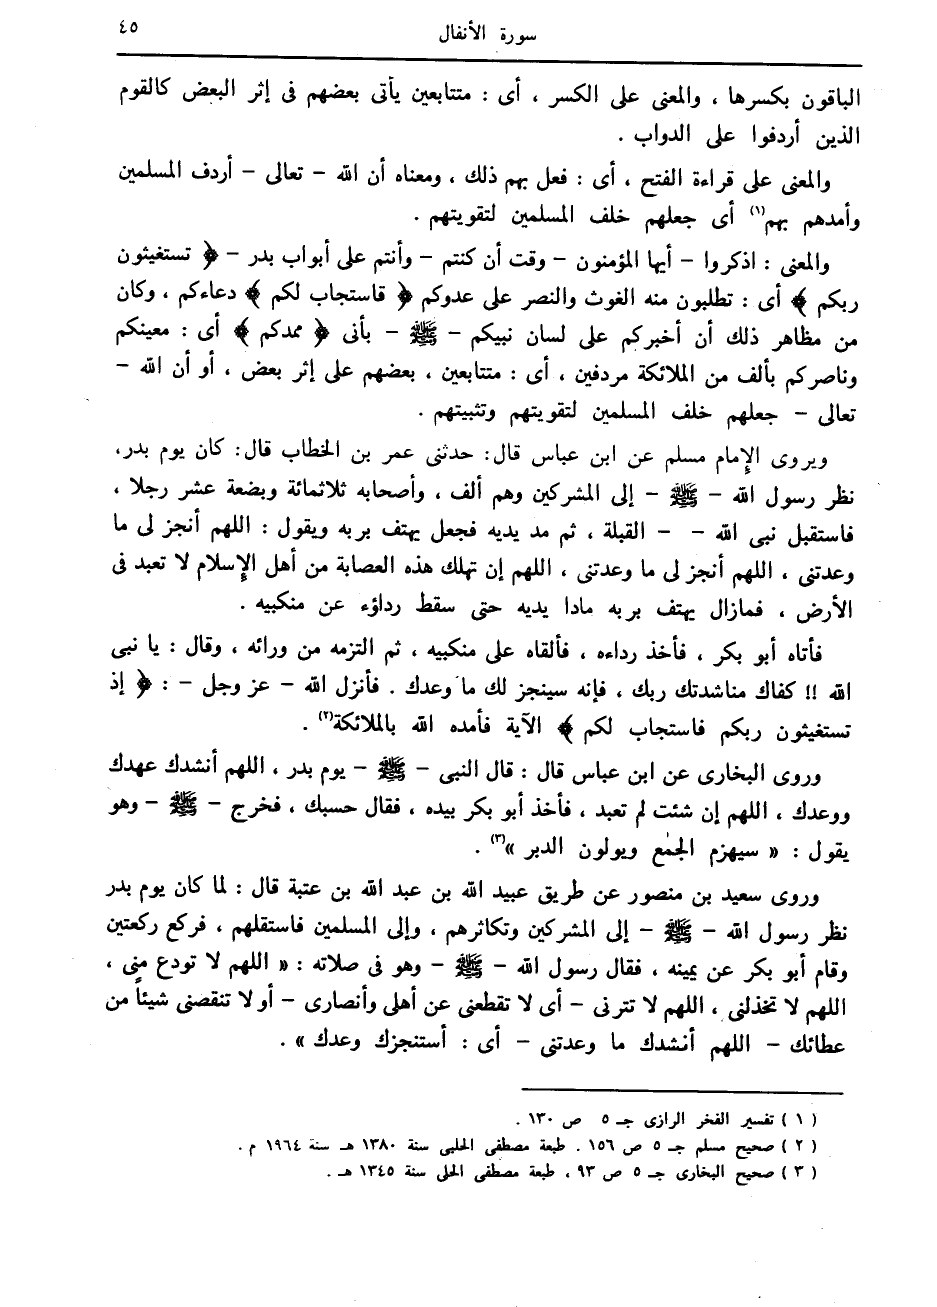 سورة الأنفال
٤٥
الباقون بكسرها ، والمعنى على الكسر ، أى : متتابعين يأتى بعضهم فى إثر البعض كالقوم
الذين أردفوا على الدواب .
والمعنى على قراءة الفتح ، أى : فعل بهم ذلك ، ومعناه أن الله – تعالى – أردف المسلمين
وأمدهم بهم(١) أى جعلهم خلف المسلمين لتقويتهم .
والمعنى : اذكروا – أيها المؤمنون – وقت أن كنتم – وأنتم على أبواب بدر – ﴿ تستغيثون
ربكم ﴾ أى : تطلبون منه الغوث والنصر على عدوكم ﴿ فاستجاب لكم ﴾ دعاءكم ، وكان
من مظاهر ذلك أن أخبركم على لسان نبيكم – ﷺ – بأنى ﴿ ممدكم ﴾ أى : معينكم
وناصركم بألف من الملائكة مردفين ، أى : متتابعين ، بعضهم على إثر بعض ، أو أن الله –
تعالى – جعلهم خلف المسلمين لتقويتهم وتثبيتهم .
ويروى الإمام مسلم عن ابن عباس قال: حدثنى عمر بن الخطاب قال: كان يوم بدر،
نظر رسول الله – ﷺ – إلى المشركين وهم ألف ، وأصحابه ثلاثمائة وبضعة عشر رجلا ،
فاستقبل نبى الله – – القبلة ، ثم مد يديه فجعل يهتف بربه ويقول : اللهم أنجز لى ما
وعدتنى ، اللهم أنجز لى ما وعدتنى ، اللهم إن تهلك هذه العصابة من أهل الإسلام لا تعبد فى
الأرض ، فمازال يهتف بربه مادا يديه حتى سقط رداؤه عن منكبيه .
فأتاه أبو بكر ، فأخذ رداءه ، فألقاه على منكبيه ، ثم التزمه من ورائه ، وقال : يا نبى
الله !! كفاك مناشدتك ربك ، فإنه سينجز لك ما وعدك . فأنزل الله – عز وجل – : ﴿ إذ
تستغيثون ربكم فاستجاب لكم ﴾ الآية فأمده الله بالملائكة(٢) .
وروى البخارى عن ابن عباس قال : قال النبى – ﷺ – يوم بدر ، اللهم أنشدك عهدك
ووعدك ، اللهم إن شئت لم تعبد ، فأخذ أبو بكر بيده ، فقال حسبك ، فخرج – ﷺ – وهو
يقول : « سيهزم الجمع ويولون الدبر »(٣) .
وروى سعيد بن منصور عن طريق عبيد الله بن عبد الله بن عتبة قال : لما كان يوم بدر
نظر رسول الله – ﷺ – إلى المشركين وتكاثرهم ، وإلى المسلمين فاستقلهم ، فركع ركعتين
وقام أبو بكر عن يمينه ، فقال رسول الله – ﷺ – وهو فى صلاته : « اللهم لا تودع منى ،
اللهم لا تخذلنى ، اللهم لا تترنى – أى لا تقطعنى عن أهلى وأنصارى – أو لا تنقصنى شيئاً من
عطائك – اللهم أنشدك ما وعدتنى – أى : أستنجزك وعدك » .
( ١ ) تفسير الفخر الرازى جـ ٥ ص ١٣٠ .
( ٢ ) صحيح مسلم جـ ٥ ص ١٥٦ . طبعة مصطفى الحلبى سنة ١٣٨٠ هـ سنة ١٩٦٤ م .
( ٣ ) صحيح البخارى جـ ٥ ص ٩٣ ، طبعة مصطفى الحلى سنة ١٣٤٥ هـ .